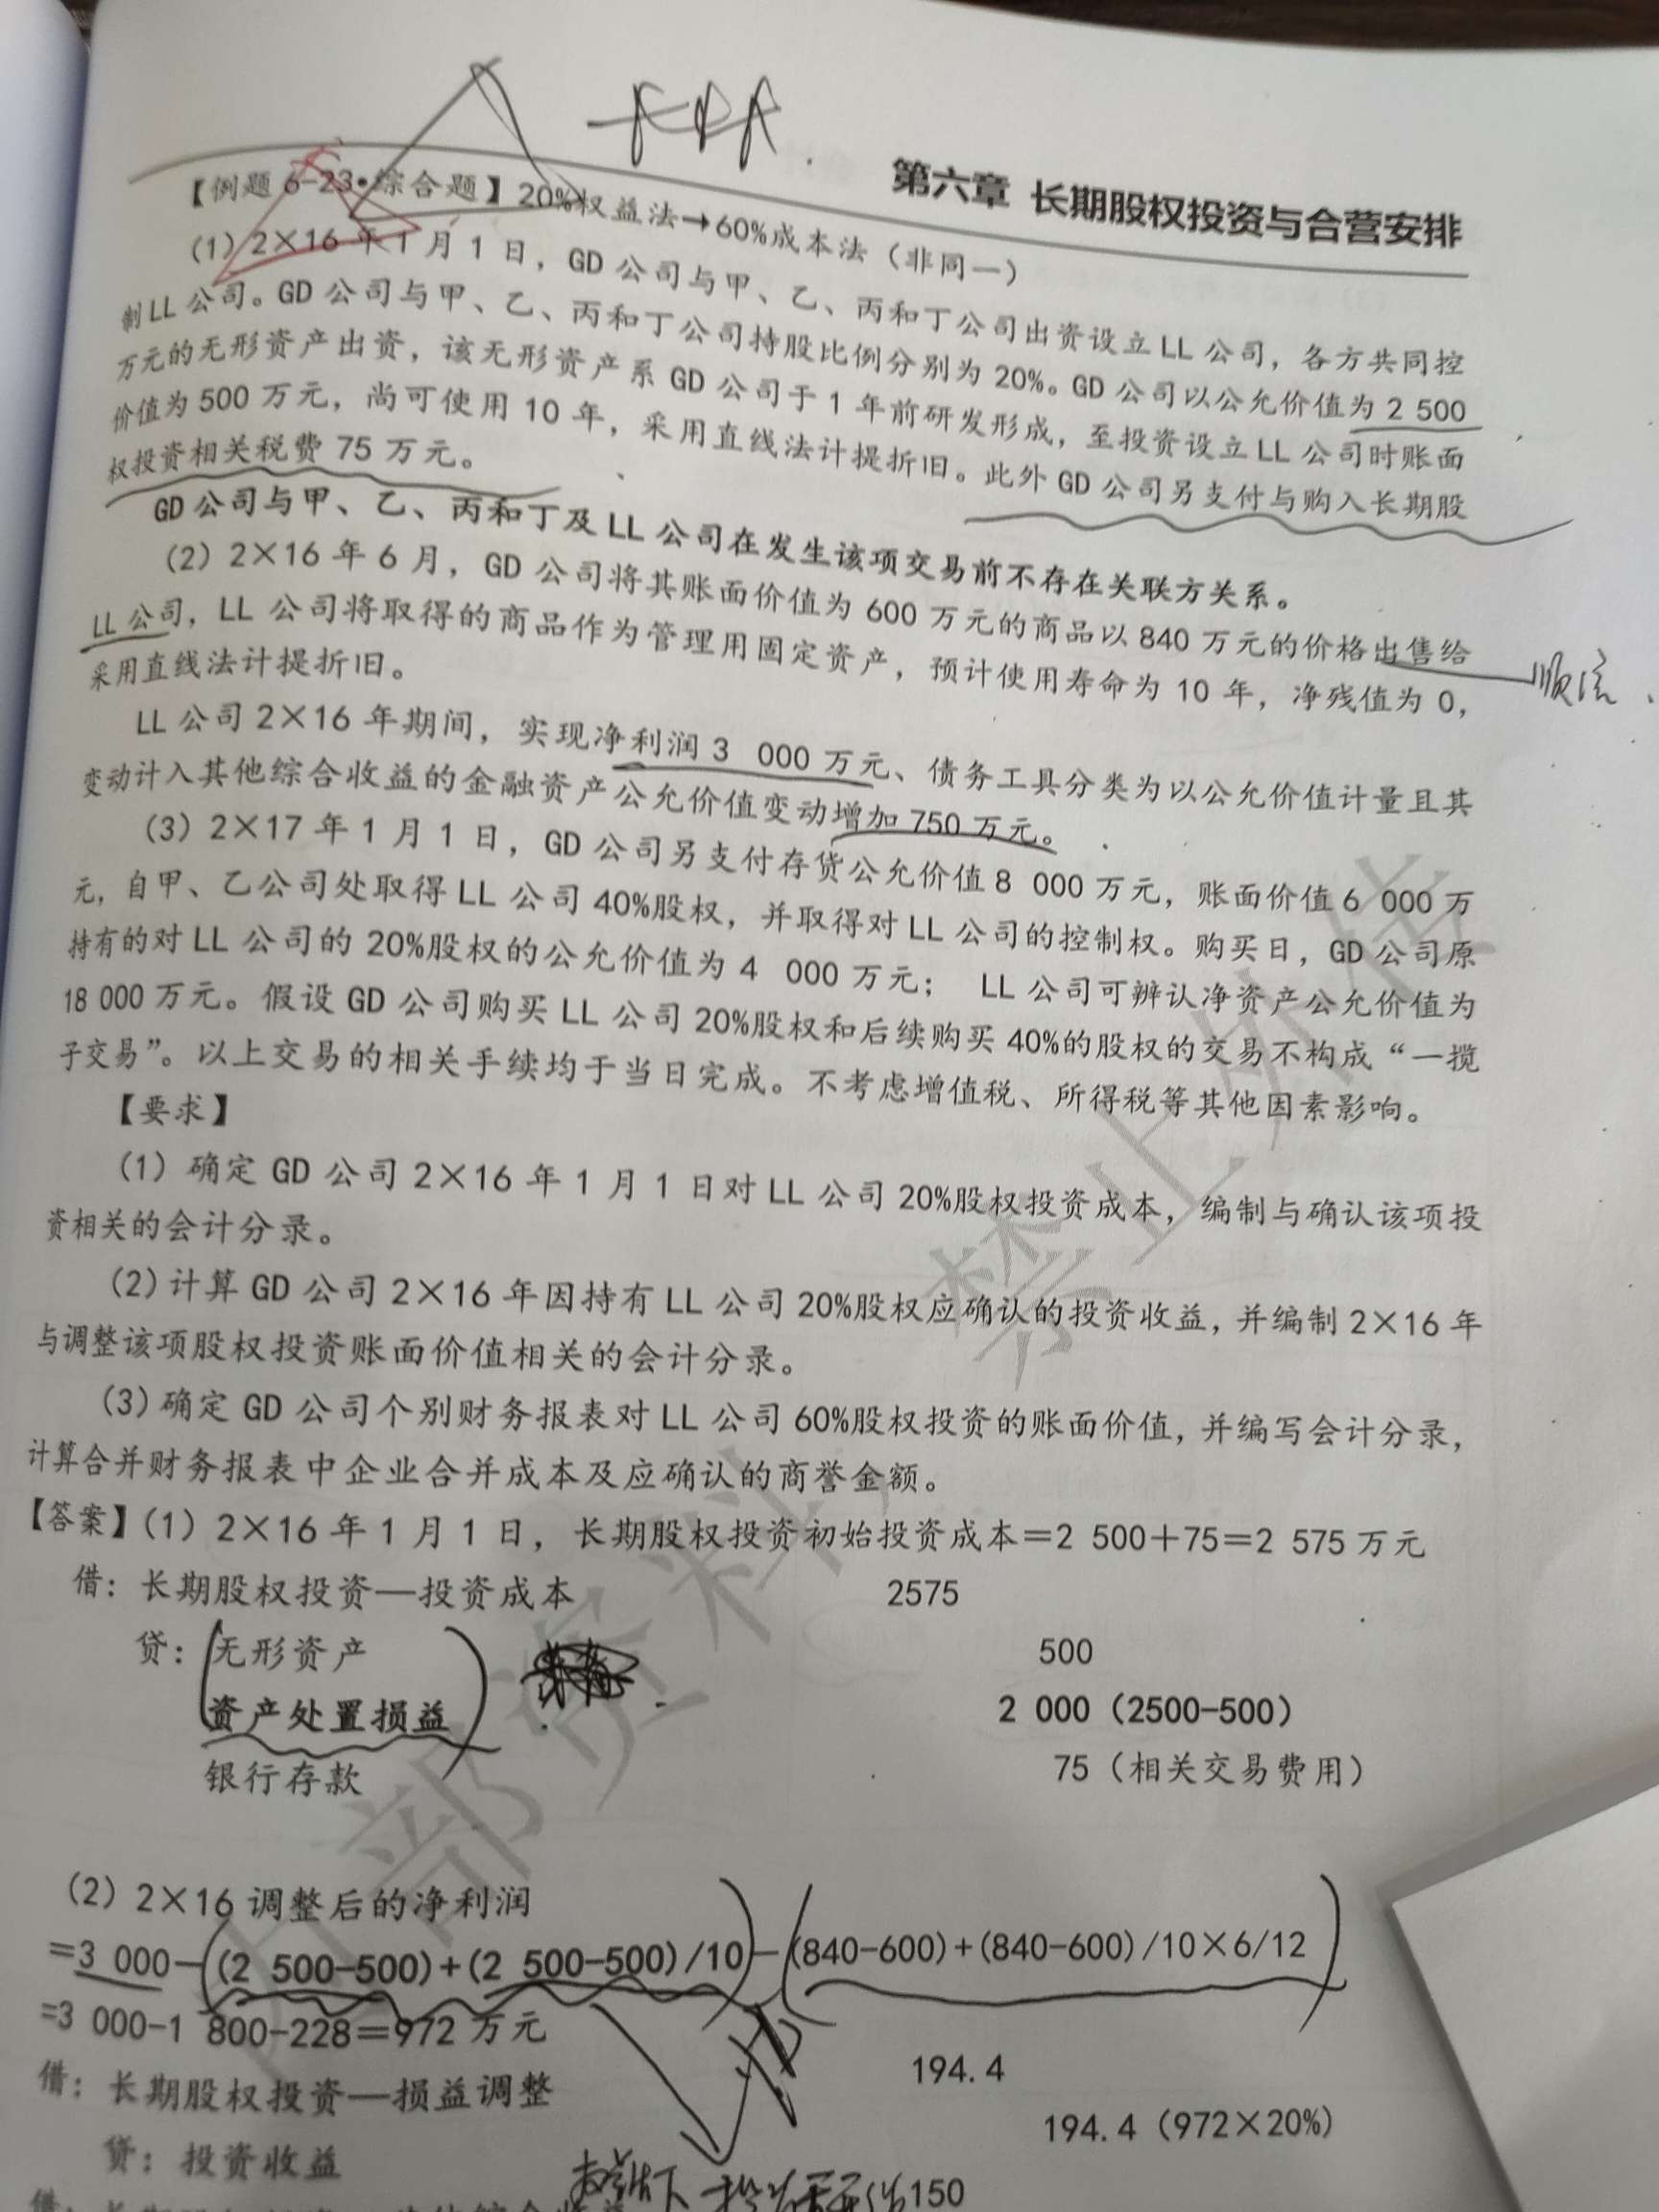 第六章 长期股权投资与合营安排
【例题 6-23•综合题】20%权益法→60%成本法（非同一）
（1）2×16 年 1 月 1 日，GD 公司与甲、乙、丙和丁公司出资设立 LL 公司，各方共同控
制 LL 公司。GD 公司与甲、乙、丙和丁公司持股比例分别为 20%。GD 公司以公允价值为 2 500
万元的无形资产出资，该无形资产系 GD 公司于 1 年前研发形成，至投资设立 LL 公司时账面
价值为 500 万元，尚可使用 10 年，采用直线法计提折旧。此外 GD 公司另支付与购入长期股
权投资相关税费 75 万元。
GD 公司与甲、乙、丙和丁及 LL 公司在发生该项交易前不存在关联方关系。
（2）2×16 年 6 月，GD 公司将其账面价值为 600 万元的商品以 840 万元的价格出售给
LL 公司，LL 公司将取得的商品作为管理用固定资产，预计使用寿命为 10 年，净残值为 0，
顺流
采用直线法计提折旧。
LL 公司 2×16 年期间，实现净利润 3 000 万元、债务工具分类为以公允价值计量且其
变动计入其他综合收益的金融资产公允价值变动增加 750 万元。
（3）2×17 年 1 月 1 日，GD 公司另支付存货公允价值 8 000 万元，账面价值 6 000 万
元，自甲、乙公司处取得 LL 公司 40%股权，并取得对 LL 公司的控制权。购买日，GD 公司原
持有的对 LL 公司的 20%股权的公允价值为 4 000 万元； LL 公司可辨认净资产公允价值为
18 000 万元。假设 GD 公司购买 LL 公司 20%股权和后续购买 40%的股权的交易不构成“一揽
子交易”。以上交易的相关手续均于当日完成。不考虑增值税、所得税等其他因素影响。
【要求】
（1）确定 GD 公司 2×16 年 1 月 1 日对 LL 公司 20%股权投资成本，编制与确认该项投
资相关的会计分录。
（2）计算 GD 公司 2×16 年因持有 LL 公司 20%股权应确认的投资收益，并编制 2×16 年
与调整该项股权投资账面价值相关的会计分录。
（3）确定 GD 公司个别财务报表对 LL 公司 60%股权投资的账面价值，并编写会计分录，
计算合并财务报表中企业合并成本及应确认的商誉金额。
【答案】（1）2×16 年 1 月 1 日，长期股权投资初始投资成本＝2 500＋75＝2 575 万元
借：长期股权投资—投资成本 2575
贷：无形资产 500
资产处置损益 2 000（2500-500）
银行存款 75（相关交易费用）
（2）2×16 调整后的净利润
＝3 000－(2 500-500)+(2 500-500)/10－(840-600)+(840-600)/10×6/12
=3 000-1 800-228＝972 万元
借：长期股权投资—损益调整 194.4
贷：投资收益 194.4（972×20%）
150
禁止外传
内部资料